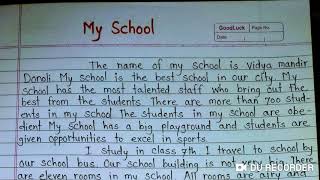 My School
GoodLuck Page No.
Date
The name of my school is Vidya mandir
Doroli. My school is the best school in our city. My
school has the most talented staff who bring out the
best from the students. There are more than 700 stud-
ents in my school The students in my school are obe-
dient My school has a big playground and students are
given opportunities to excel in sports.
I study in class 7th. I travel to school by
our school bus. Our school building is not big. There
are eleven rooms in my school. All rooms are airy and
DU RECORDER